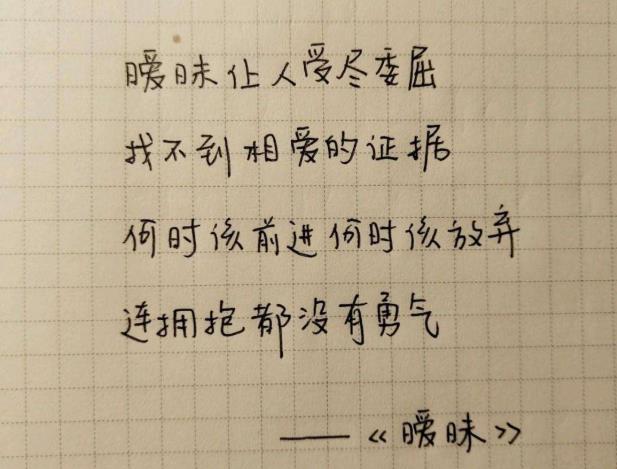 暧昧让人受尽委屈
找不到相爱的证据
何时该前进何时该放弃
连拥抱都没有勇气
——《暧昧》